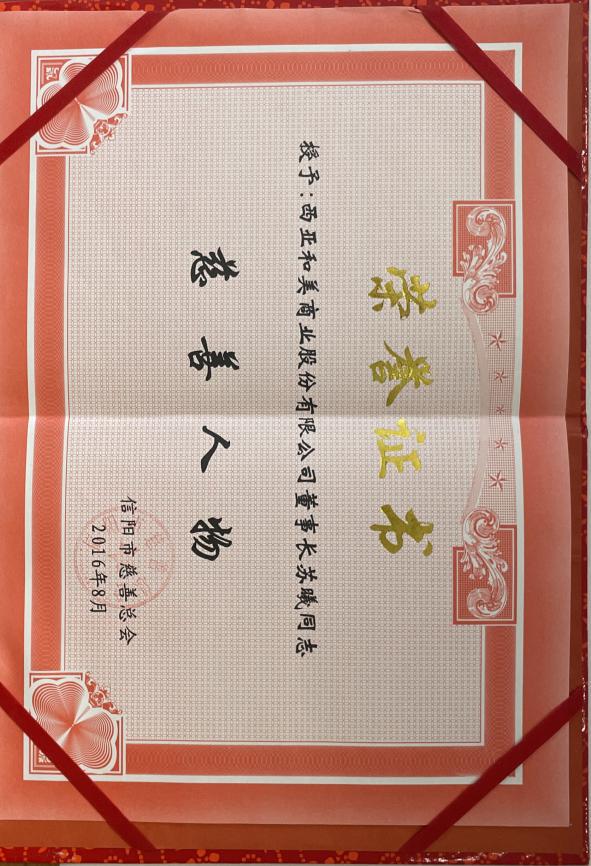 荣誉证书
授予：西亚和美商业股份有限公司董事长苏曦同志
慈善人物
信阳市慈善总会
2016年8月